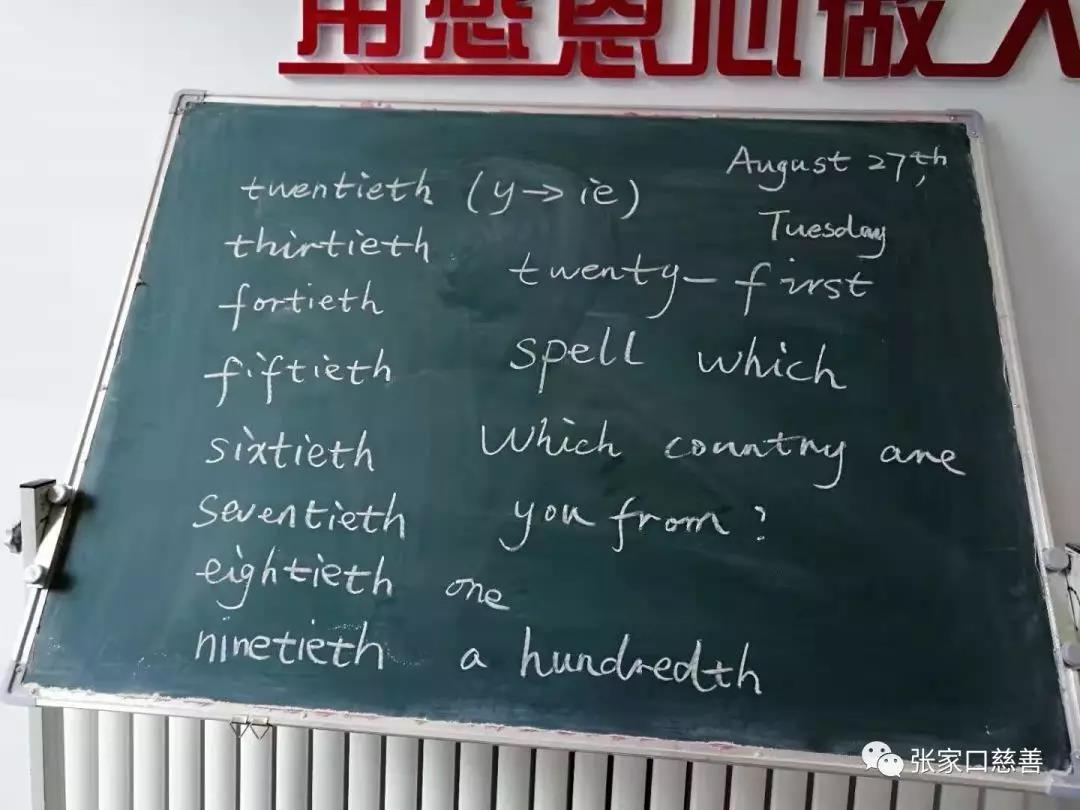 用感恩心做人
August 27th,
Tuesday
twentieth (y→ie)
thirtieth
twenty-first
fortieth
spell which
fiftieth
Which country are
sixtieth
you from?
seventieth
eightieth one
ninetieth a hundredth
张家口慈善